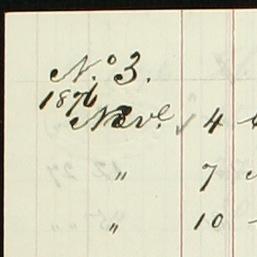 No. 3.
1876
Nove. 4
" 7
" 10